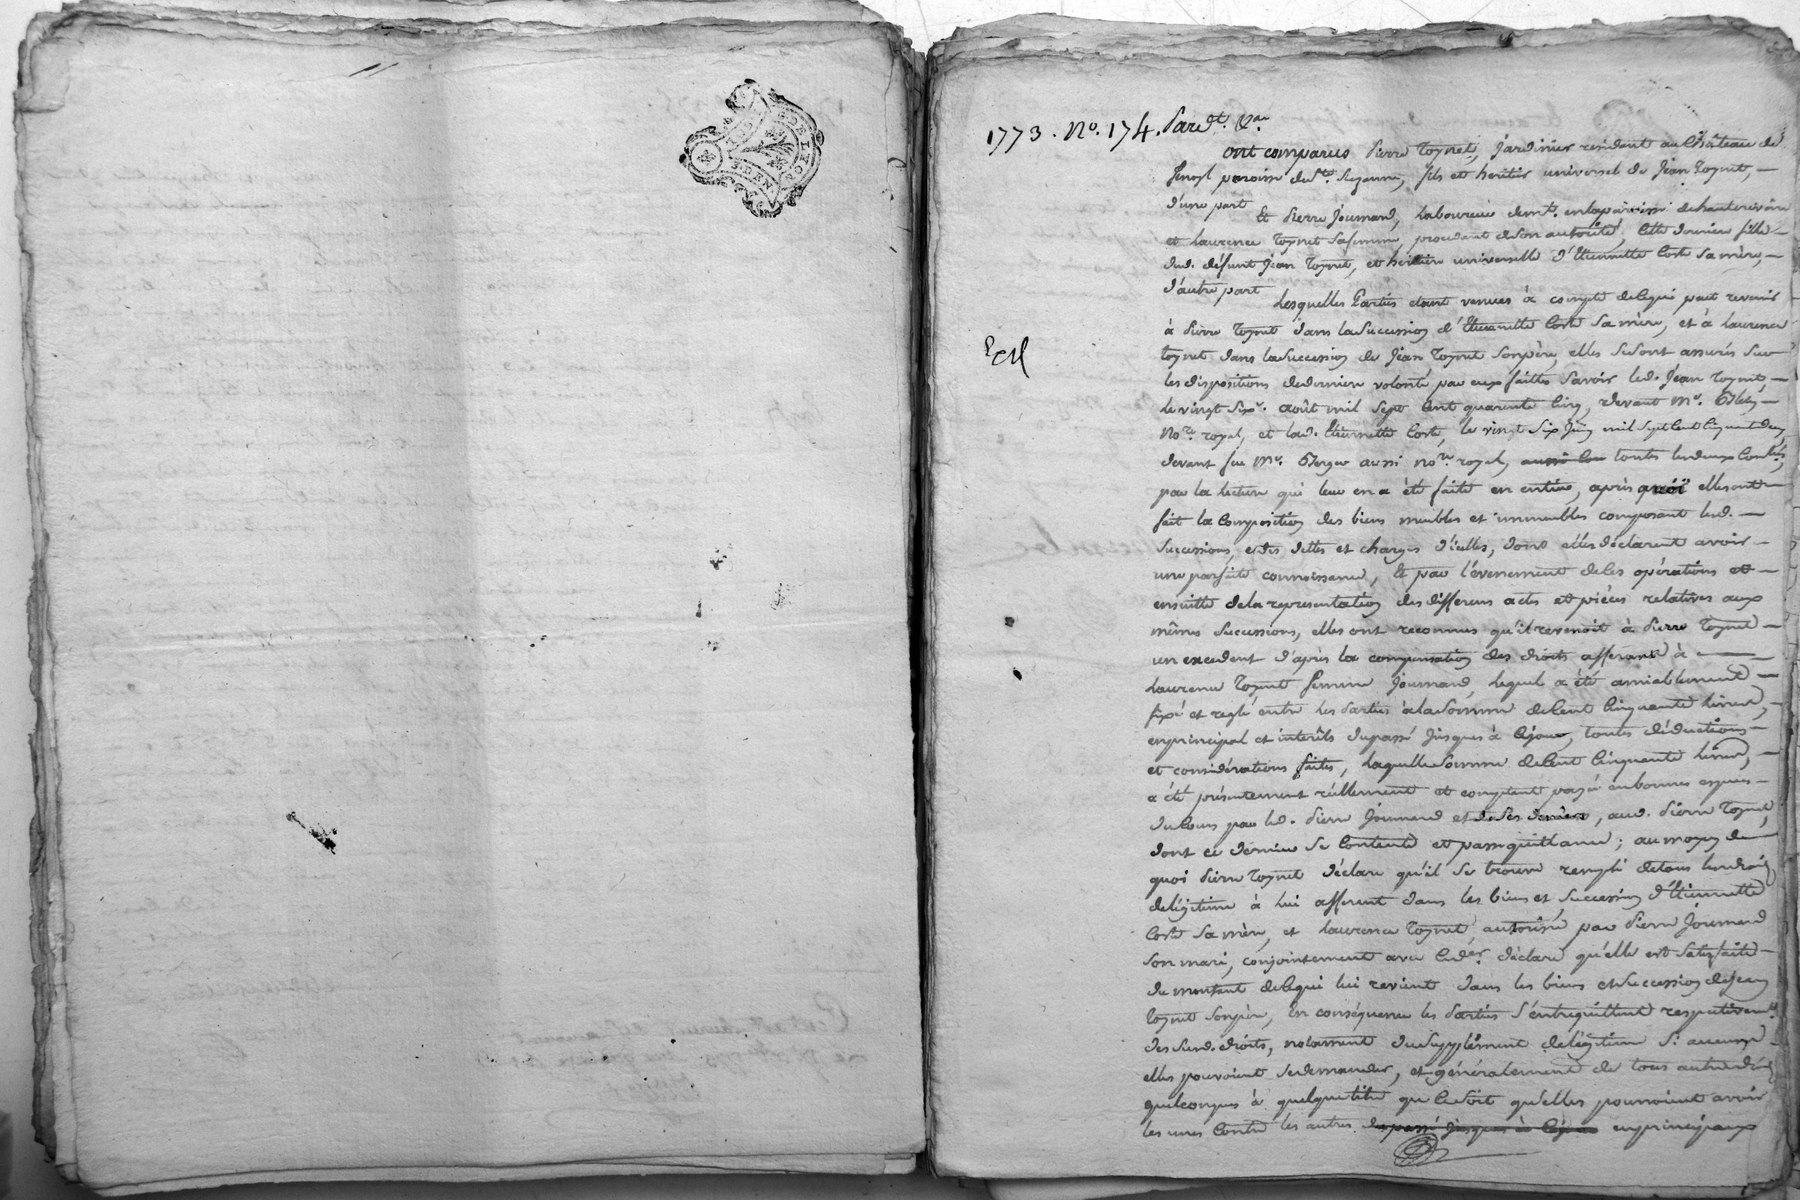 1773. No. 174. Pard.t &.a
ont comparus Pierre Toynet, Jardinier residant au Château de
paroisse de S.te Suzanne, fils et heritier universel de Jean Toynet,
d'une part
Et Pierre Journand, Laboureur demt. en la paroisse de hauterivoire
et Laurence Toynet sa femme, procedant de son autorité, cette derniere fille
dud. défunt Jean Toynet, et héritiere universelle d'Etiennette Coste sa mère,
d'autre part
Lesquelles Parties etant venues à compte de ce qui peut revenir
à Pierre Toynet dans la Succession d'Etiennette Coste sa mère, et à Laurence
Toynet dans la Succession de Jean Toynet son père, elles se sont assurés sur
les dispositions de derniere volonté par eux faittes Savoir led. Jean Toynet,
le vingt Six.e août mil Sept Cent quarente Cinq, devant M.e
No.re royal, et lad. Etiennette Coste, le vingt Six Juin mil Sept Cent Cinquante deux,
devant feu M.e Berger aussi no.re royal, toutes les deux
par la lecture qui leur en a été faite en entier, après quoi elles ont
fait la Composition des biens meubles et immeubles composant lesd.
Successions, et des dettes et charges d'icelles, dont elles déclarent avoir
une parfaite connoissance, Et par l'évenement de ces opérations et
ensuitte de la representation des differens actes et pièces relatives aux
mêmes Successions, elles ont reconnus qu'il revenoit à Pierre Toynet
un excedent d'après la compensation des droits afferants à
Laurence Toynet femme Journand, lequel a été amiablement
fixé et reglé entre les Parties à la Somme de Cent Cinquante livres,
en principal et interêts du passé jusques à ce jour, toutes déductions
et considérations faites, laquelle Somme de Cent Cinquante livres,
a été présentement réellement et comptant payé en bonnes especes
du Cours par led. Pierre Journand et de ses deniers, aud. Pierre Toynet,
dont ce dernier se Contente et passe quittance; au moyen de
quoi Pierre Toynet déclare qu'il se trouve rempli de tous les droits
de légitime à lui afferent dans les biens et Succession d'Etiennette
Coste sa mère, et Laurence Toynet autorisée par Pierre Journand
son mari, conjointement avec led.er déclare qu'elle est Satisfaite
du montant de ce qui lui revient dans les biens et Succession de Jean
Toynet son père, En conséquence les Parties s'entrequittent respectivem.t
des susd. droits, notamment du Supplément de légitime Si aucun
elles pouvoient se demander, et généralement de tous autres droits
quelconques à quelque titre que ce soit qu'elles pourroient avoir
les unes Contre les autres du passé jusques à ce jour en principaux